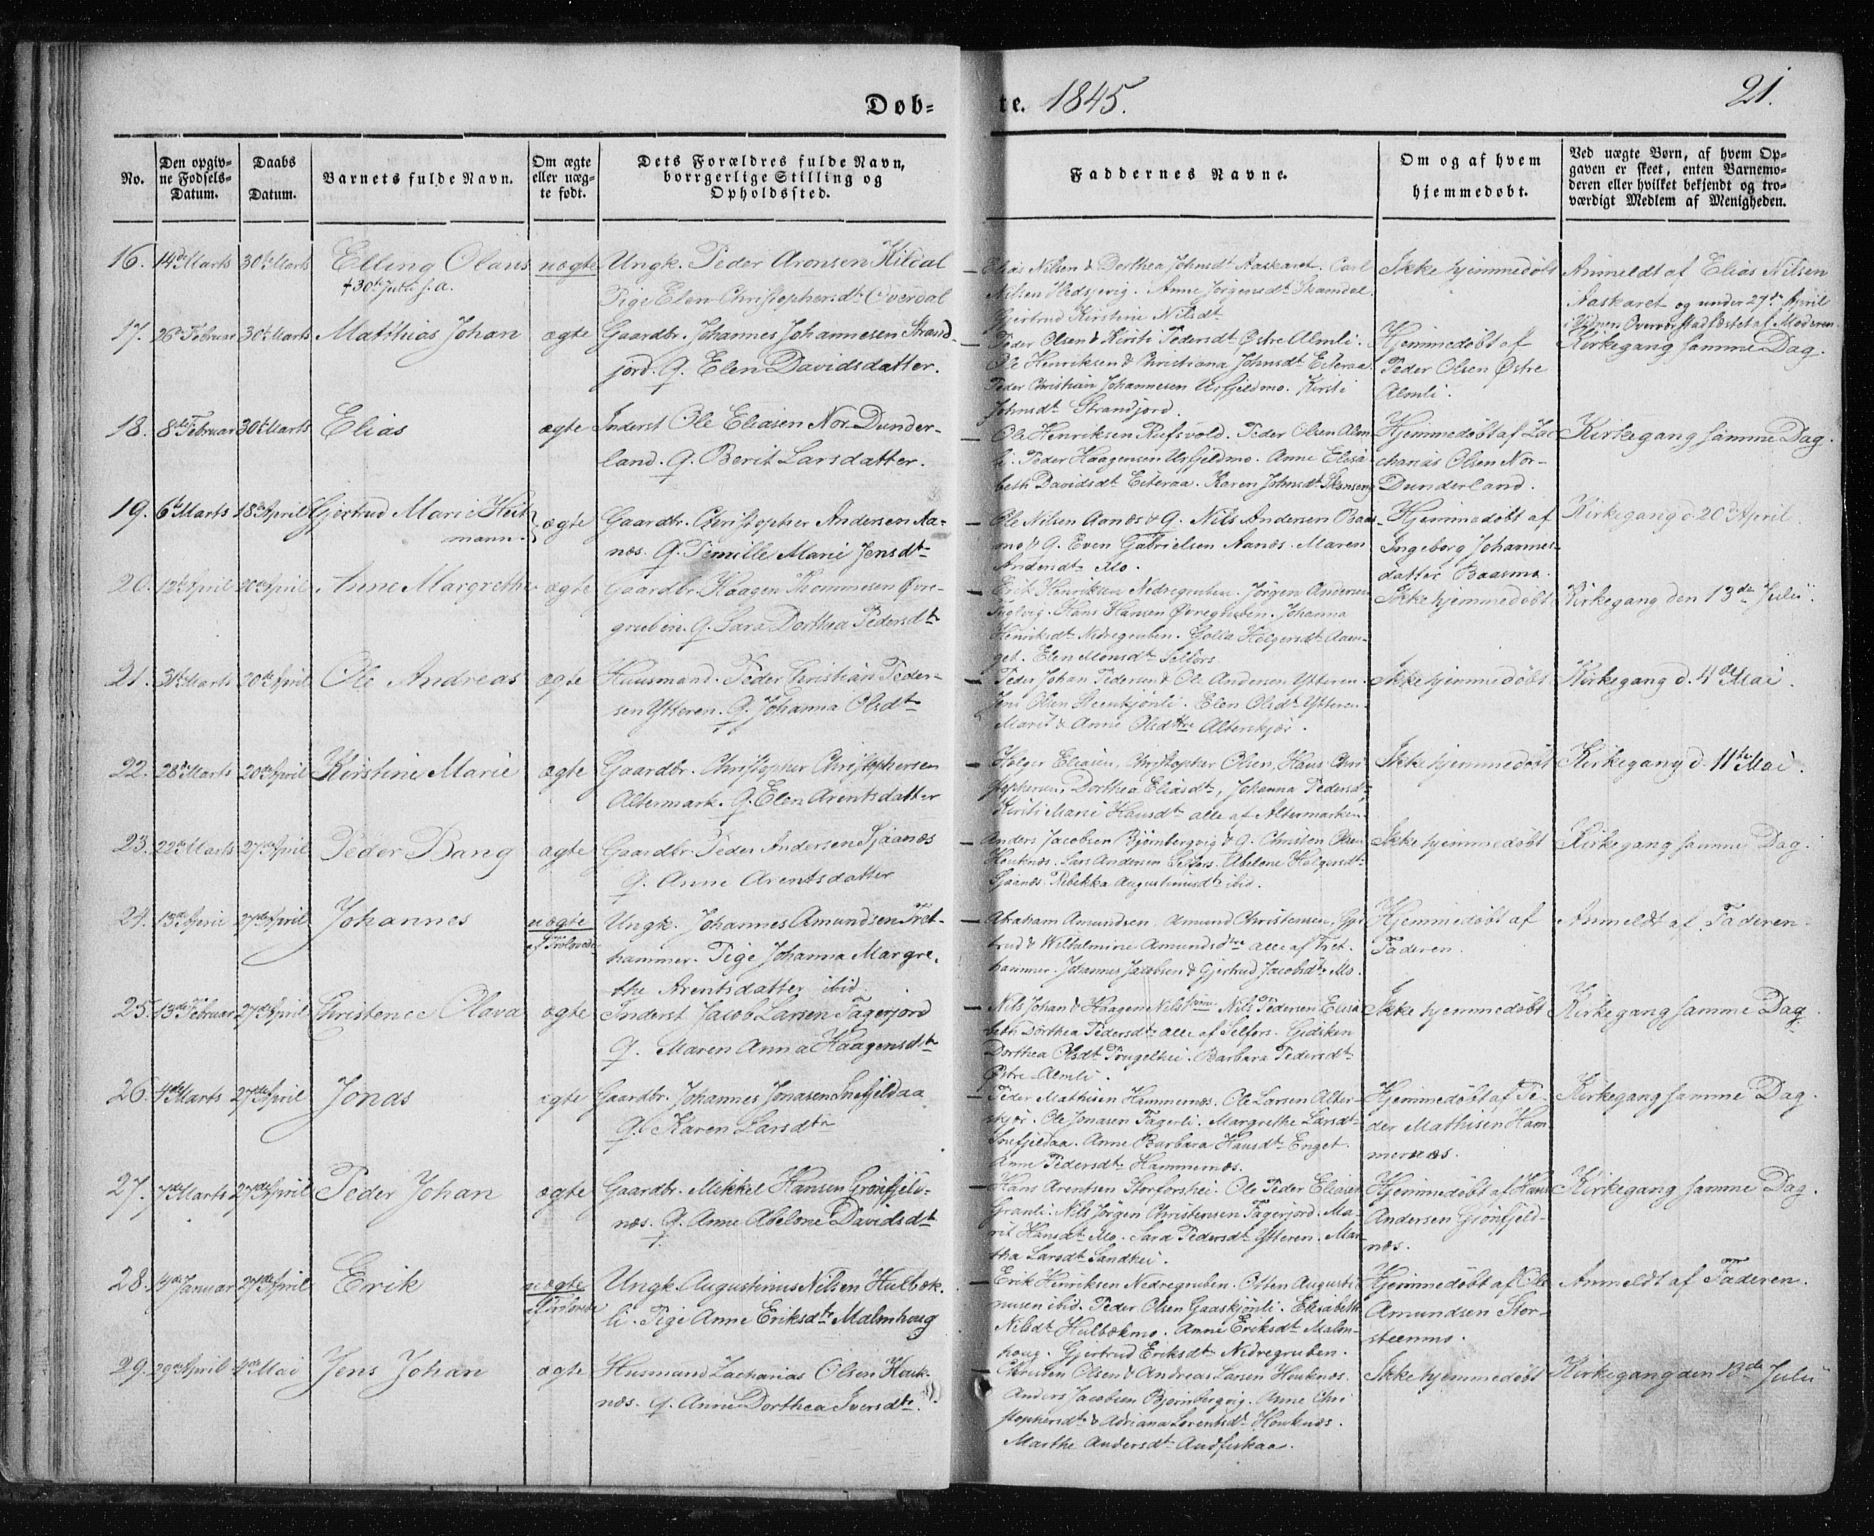 Døb=
te. 1845.
21.
No.
Den opgiv=
ne Fødsels=
Datum.
Daabs
Datum.
Barnets fulde Navn.
Om ægte
eller uæg=
te født.
Dets Forældres fulde Navn,
borgerlige Stilling og
Opholdssted.
Faddernes Navne.
Om og af hvem
hjemmedøbt.
Ved uægte Børn, af hvem Op=
gaven er skeet, enten Barnemo=
deren eller hvilket bekjendt og tro=
værdigt Medlem af Menigheden.
16. 14de Marts 30te Marts Elling Olaus uægte Ungk. Peder Aronsen Kildal
Tige Elen Christophersdt Overdal
Elias Nilsen & Dorthea Johnsdt Aaskaret. Carl
Nilsen. Anne Jørgensdt
Gjertrud Kirstine Nilsdt
Ikke hjemmedøbt
Anmeldt af Elias Nilsen
Aaskaret og under 29de April
17. 26de Februar 30te Marts Matthias Johan ægte Gaardbr. Johannes Johannesen Strand-
jord. Q. Elen Davidsdatter.
Peder Olsen & Kirsti Pedersdt Østre Almli.
Ole Henriksen & Christiana Johnsdt Eiteraa
Peder Christian Johannesen Urfjeldmo. Kirsti
Johnsdt Strandjord.
Hjemmedøbt af
Peder Olsen Østre
Almli.
Kirkegang samme Dag.
18. 8de Februar 30te Marts Elias ægte Inderst Ole Eliasen Nor. Dunder-
land. Q. Berit Larsdatter.
Ole Henriksen Rufsvold. Peder Olsen Alm-
li. Peder Haagensen Urfjeldmo. Anne Elisa-
beth Davidsdt Eiteraa. Karen Johnsdt
Hjemmedøbt af Zac-
charias Olsen Nor-
Dunderland.
Kirkegang samme Dag.
19. 6te Marts 18de April Gjertrud Marie Heit-
mann. ægte Gaardbr. Christopher Andersen Aa-
næs. Q. Pernille Marie Jensdt
Ole Nilsen Aanæs & Q. Nils Andersen Baas-
mo & Q. Even Gabrielsen Aanæs. Maren
Andersdt Mo.
Hjemmedøbt af
Ingeborg Johannes-
datter Baasmo.
Kirkegang d. 20de April
20. 12te April 20de April Anne Margrethe ægte Gaardbr. Haagen Thommesen Øvre-
gruben. Q. Sara Dorthea Pedersdt
Erik Henriksen Nedregruben. Jørgen Andersen
Hans Hansen Øvregruben. Johanna
Henriksdt Nedregruben. Holgersdt Aaen-
get. Elen Monsdt Selfors.
Ikke hjemmedøbt
Kirkegang den 13de Julii.
21. 31te Marts 20de April Ole Andreas ægte Huusmand. Peder Christian Peder-
sen Ytteren. Q. Johanna Olsdt
Peder Johan Pedersen & Ole Andersen Ytteren.
Jens Olsen. Elen Olsdt Ytteren.
Maren & Anne Olsdttre Alterskjær.
Ikke hjemmedøbt
Kirkegang d. 4de Mai.
22. 28de Marts 20de April Kirstine Marie ægte Gaardbr. Christopher Christophersen
Altermark. Q. Elen Arentsdatter
Holger Eliasen, Christopher Olsen, Hans Chri-
stophersen, Dorthea Eliasdt, Johanna Pedersdt,
Kirsti Marie Hansdt alle af Altermarken
Ikke hjemmedøbt
Kirkegang d. 11te Mai.
23. 22de Marts 27de April Peder Bang ægte Gaardbr. Peder Andersen Sjaanæs
Q. Anne Arentsdatter
Anders Jacobsen Bjørnbergvig & Q. Christen Olsen
Houknæs. Lars Andersen Selfors. Abelone Holgersdt
Sjaanæs. Rebekka Augustinusdt ibid.
Ikke hjemmedøbt
Kirkegang samme Dag.
24. 13de April 27de April Johannes uægte Ungk. Johannes Amundsen Fret-
hammer. Pige Johanna Margre-
the Arentsdatter ibid.
Abraham Amundsen. Amund Christensen, Gjer-
trud & Wilhelmine Amundsdttre alle af Fret-
hammer. Johannes Jacobsen & Gjertrud Jacobsdt Mo.
Hjemmedøbt af
Faderen.
Anmeldt af Faderen.
25. 13de Februar 27de April Christence Olava ægte Inderst Jacob Larsen Fagerjord
Q. Maren Anna Haagensdt
Nils Johan & Haagen Nilssønner Nils Pedersen Elisa-
beth Dorthea Pedersdt alle af Selfors. Gidsken
Dorthea Olsdt. Barbara Pedersdt
Østre-Almli.
Ikke hjemmedøbt
Kirkegang samme Dag
26. 4de Marts 27de April Jonas ægte Gaardbr. Johannes Jonasen Snefjeldaa
Q. Karen Larsdtr
Peder Mathisen Hammernæs. Ole Larsen Alter-
skjær. Ole Jonasen Fagerli. Margrethe Larsdt
Snefjeldaa. Anne Barbara Hansdt Enget.
Anne Pedersdt Hammernæs.
Hjemmedøbt af Pe-
der Mathisen Ham-
mernæs.
Kirkegang samme Dag.
27. 7de Marts 27de April Peder Johan ægte Gaardbr. Mikkel Hansen Grønfjeld-
næs. Q. Anne Abelone Davidsdt
Hans Arentsen Storforshei. Ole Peder Eliasen
Granli. Nils Jørgen Christensen Fagerjord. Ma-
rit Hansdt Mo. Sara Pedersdt Ytteren. Mar-
tha Larsdt Sandhei.
Hjemmedøbt af Hans
Andersen Grønfjeld-
næs.
Kirkegang samme Dag.
28. 4de Januar 27de April Erik uægte Ungk. Augustinus Nilsen Hulbæk-
li. Pige Anne Eriksdt Malmhoug
Erik Henriksen Nedregruben. Osten Augusti-
nusen ibid. Peder Olsen Gaaskjønli. Elisabeth
Nilsdt Hulbækmo. Anne Eriksdt Malm-
houg. Gjertrud Eriksdt Nedregruben.
Hjemmedøbt af Ole
Amundsen Stor-
steenmo.
Anmeldt af Faderen.
29. 29de April 4de Mai Jens Johan ægte Husmand Zacharias Olsen Houk-
næs. Q. Anne Dorthea Iversdt.
Christen Olsen & Andreas Larsen Houknæs.
Anders Jacobsen Bjørnbergvig. Anne Chri-
stophersdt & Adriana Lorentsdt Houknæs.
Marthe Andersdt Andfiskaa.
Ikke hjemmedøbt
Kirkegang den 13de Julii